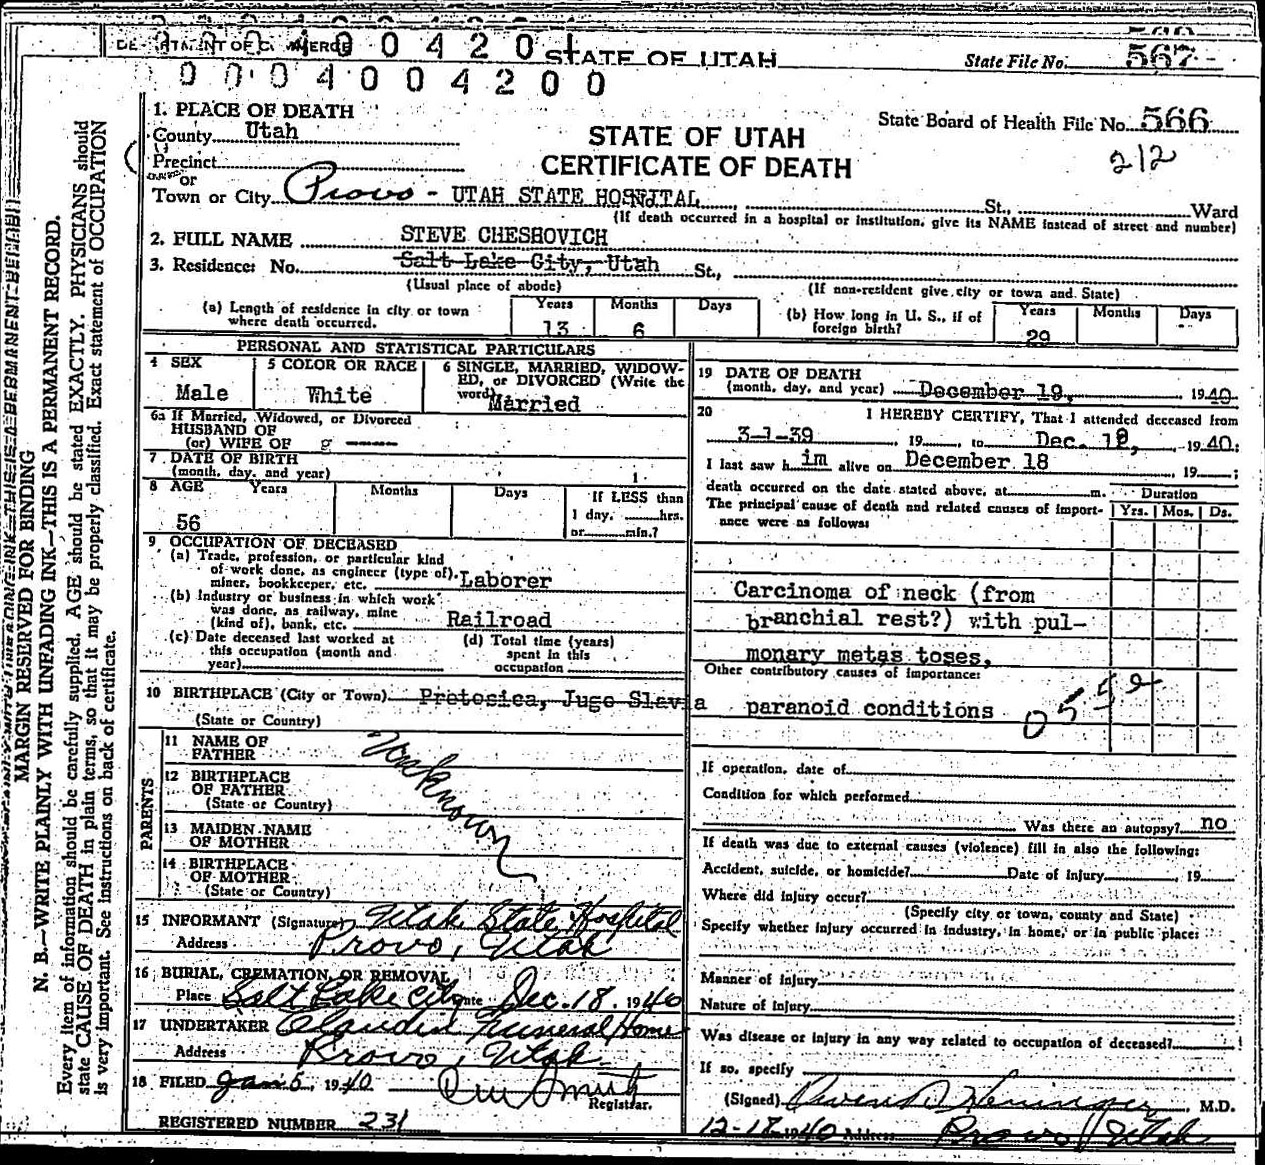 DEPARTMENT OF COMMERCE
STATE OF UTAH
State File No. 567
0 0 0 4 0 0 4 2 0 0
1. PLACE OF DEATH
County Utah
Precinct
or
Town or City Provo - UTAH STATE HOSPITAL St., Ward
STATE OF UTAH
CERTIFICATE OF DEATH
State Board of Health File No. 566
212
(If death occurred in a hospital or institution, give its NAME instead of street and number)
2. FULL NAME STEVE CHESHOVICH
3. Residence: No. Salt Lake City, Utah St.,
(Usual place of abode) (If non-resident give city or town and State)
(a) Length of residence in city or town where death occurred. Years 13 Months 6 Days
(b) How long in U. S., if of foreign birth? Years 29 Months Days
PERSONAL AND STATISTICAL PARTICULARS
4 SEX Male
5 COLOR OR RACE White
6 SINGLE, MARRIED, WIDOWED, or DIVORCED (Write the word) Married
6a If Married, Widowed, or Divorced
HUSBAND OF
(or) WIFE OF g
7 DATE OF BIRTH
(month, day, and year)
8 AGE Years Months Days If LESS than
56 1 day, hrs.
or min.?
9 OCCUPATION OF DECEASED
(a) Trade, profession, or particular kind
of work done, as engineer (type of),
miner, bookkeeper, etc. Laborer
(b) Industry or business in which work
was done, as railway, mine
(kind of), bank, etc. Railroad
(c) Date deceased last worked at
this occupation (month and
year)
(d) Total time (years)
spent in this
occupation
10 BIRTHPLACE (City or Town) Pretosica, Jugo Slavia
(State or Country)
PARENTS
11 NAME OF
FATHER
12 BIRTHPLACE
OF FATHER
(State or Country)
13 MAIDEN NAME
OF MOTHER
14 BIRTHPLACE
OF MOTHER
(State or Country)
Unknown
15 INFORMANT (Signature) Utah State Hospital
Address Provo, Utah
16 BURIAL, CREMATION, OR REMOVAL
Place Salt Lake City Date Dec. 18. 1940
17 UNDERTAKER Claudin Funeral Home
Address Provo, Utah
18 FILED Jan 5, 1940
Registrar.
REGISTERED NUMBER 231
19 DATE OF DEATH
(month, day, and year) December 19, 1940
20 I HEREBY CERTIFY, That I attended deceased from
3-1-39, 19 , to Dec. 19, 1940;
I last saw him alive on December 18, 19 ;
death occurred on the date stated above, at m.
The principal cause of death and related causes of importance were as follows:
Duration
Yrs. Mos. Ds.
Carcinoma of neck (from
branchial rest?) with pul-
monary metas toses,
Other contributory causes of importance:
paranoid conditions
If operation, date of
Condition for which performed
Was there an autopsy? no
If death was due to external causes (violence) fill in also the following:
Accident, suicide, or homicide? Date of injury , 19
Where did injury occur?
(Specify city or town, county and State)
Specify whether injury occurred in industry, in home, or in public place:
Manner of injury
Nature of injury
Was disease or injury in any way related to occupation of deceased?
If so, specify
(Signed) M.D.
12-18-1940 Address Provo, Utah
MARGIN RESERVED FOR BINDING
N. B.—WRITE PLAINLY WITH UNFADING INK—THIS IS A PERMANENT RECORD.
Every item of information should be carefully supplied. AGE should be stated EXACTLY. PHYSICIANS should
state CAUSE OF DEATH in plain terms, so that it may be properly classified. Exact statement of OCCUPATION
is very important. See instructions on back of certificate.